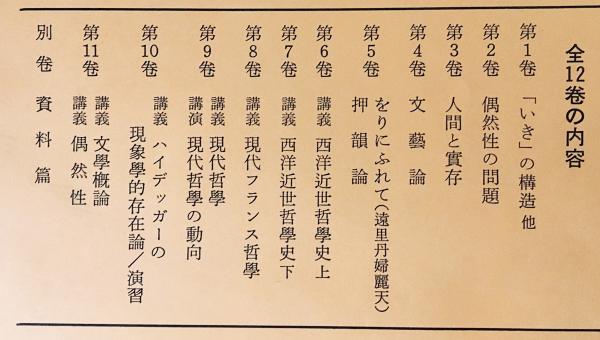 全12卷の内容
第1卷 「いき」の構造 他
第2卷 偶然性の問題
第3卷 人間と實存
第4卷 文藝論
第5卷 をりにふれて(遠里丹婦麗天)
押韻論
第6卷 講義 西洋近世哲學史上
第7卷 講義 西洋近世哲學史下
第8卷 講義 現代フランス哲學
第9卷 講義 現代哲學
講演 現代哲學の動向
第10卷 講義 ハイデッガーの
現象學的存在論/演習
第11卷 講義 文學概論
講義 偶然性
別卷 資料篇